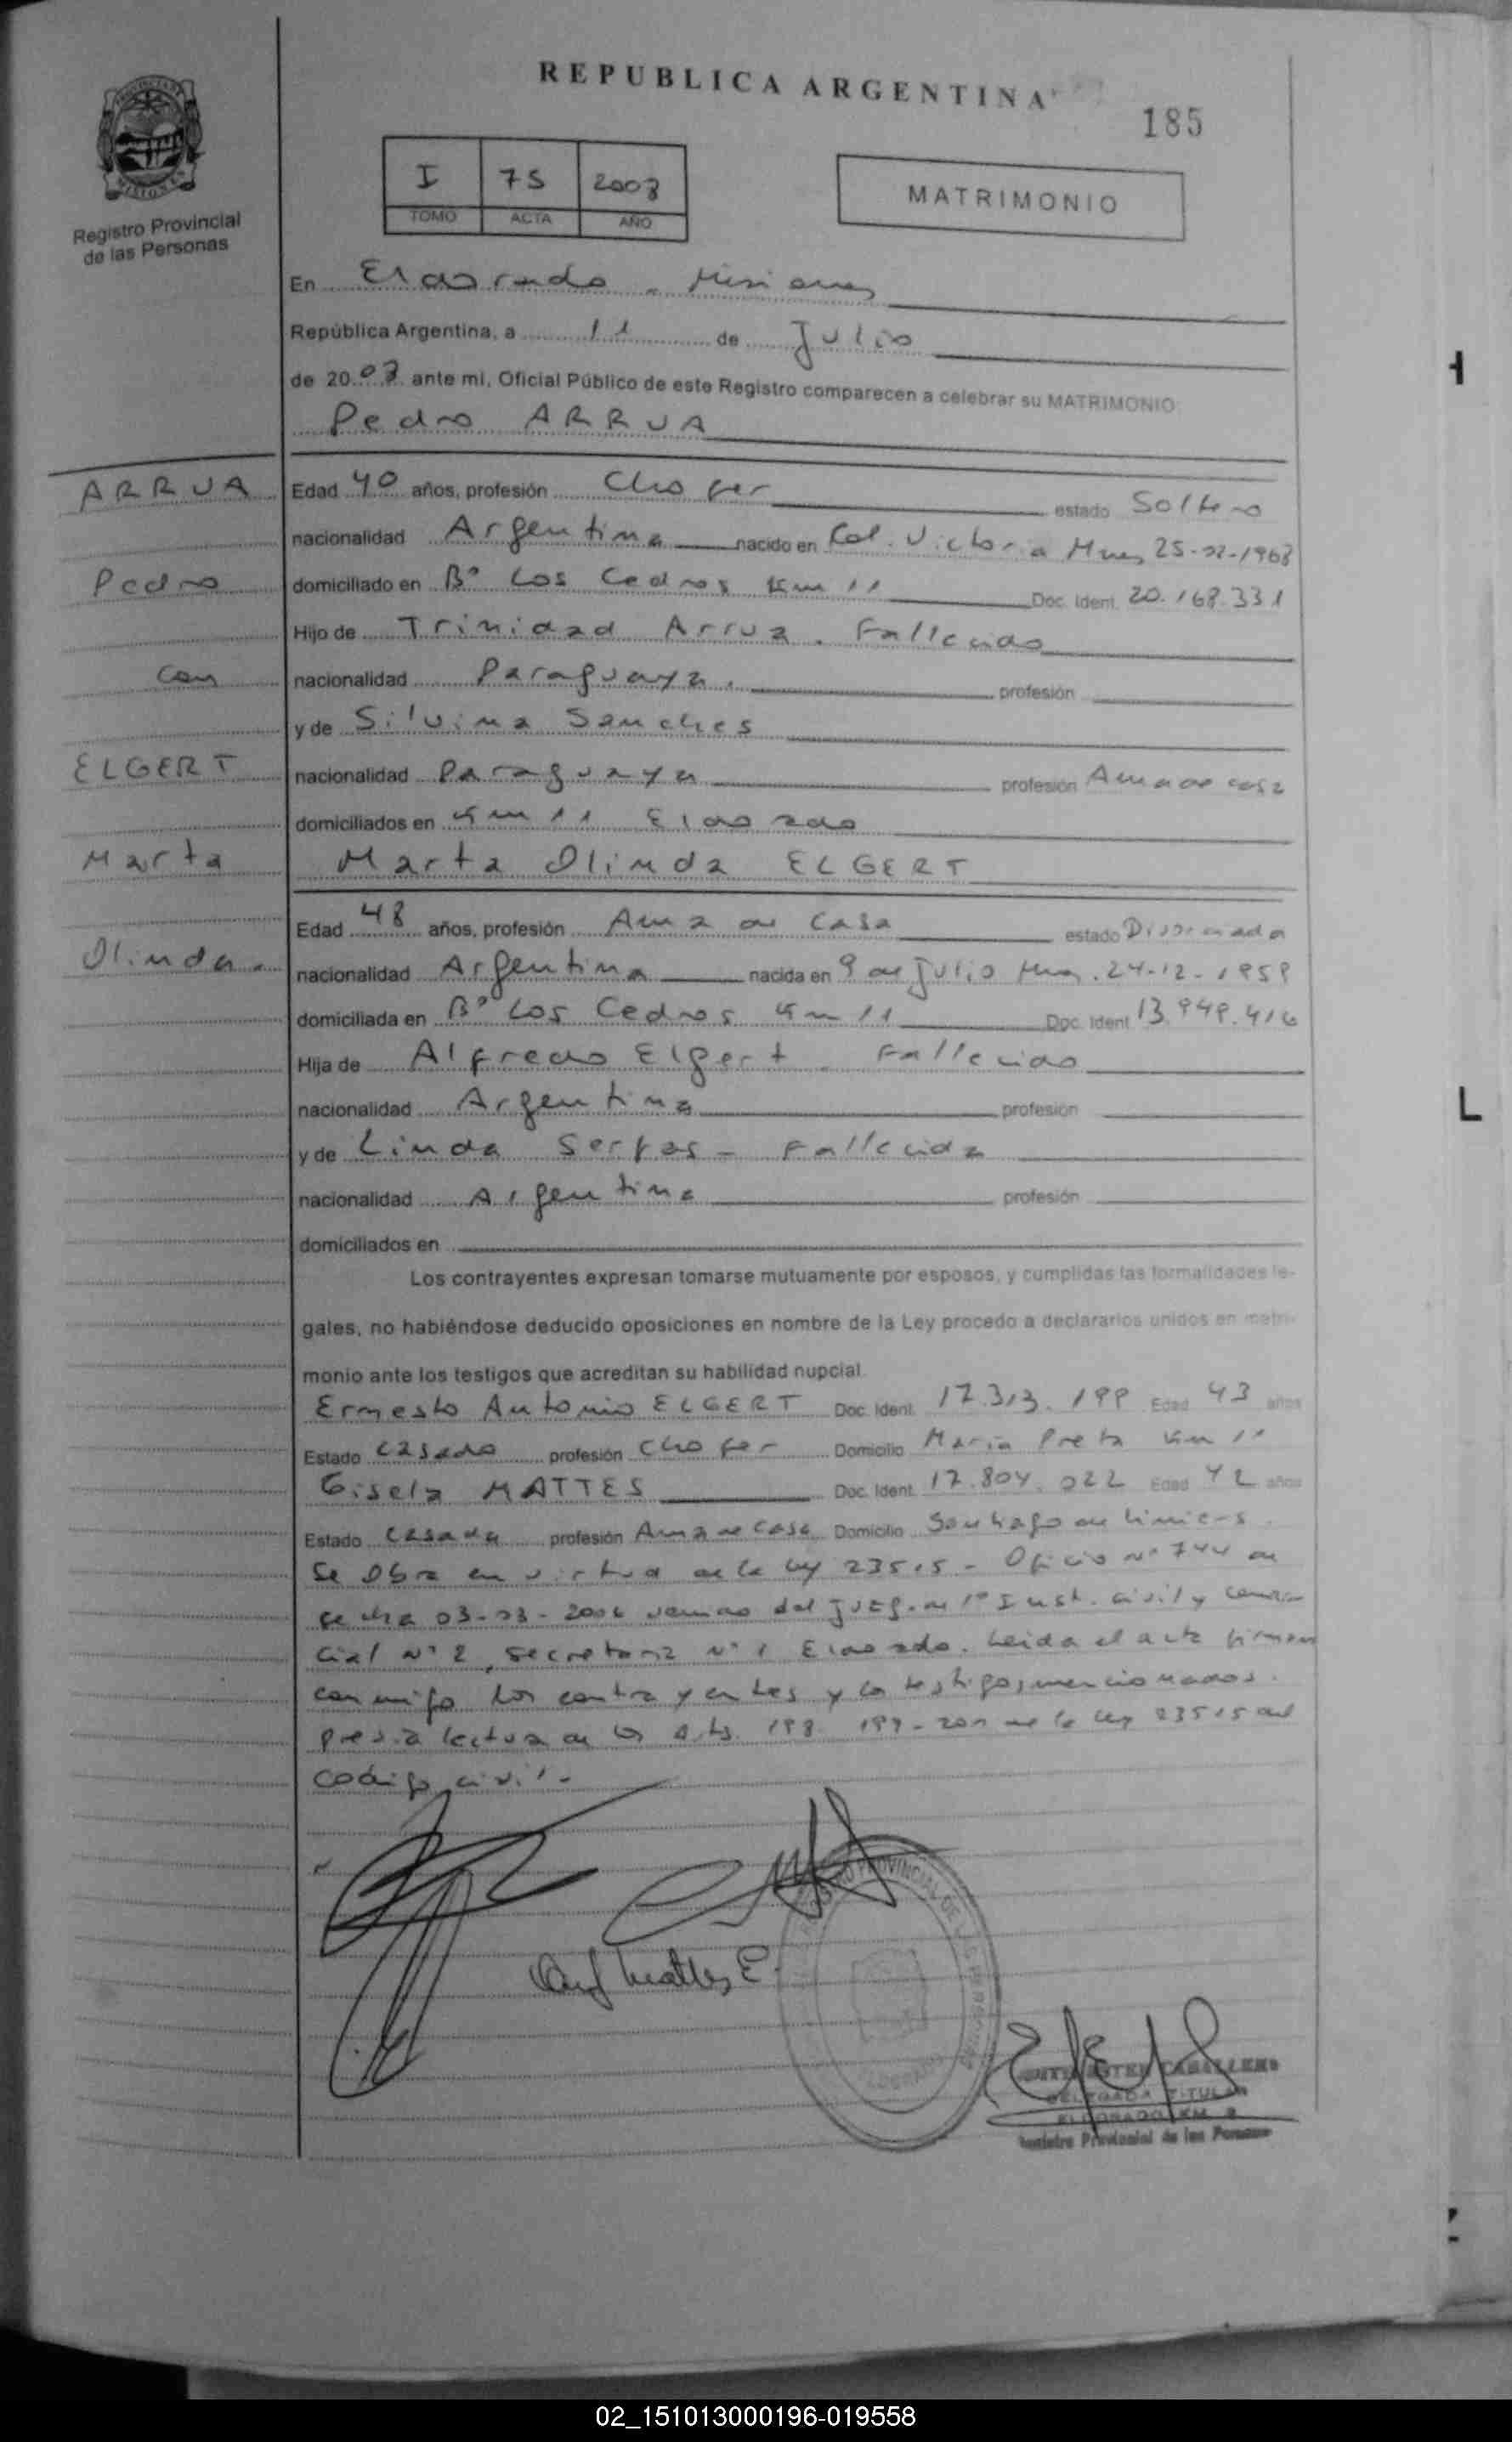 REPUBLICA ARGENTINA
185
I 75 2008
TOMO ACTA AÑO
MATRIMONIO
Registro Provincial
de las Personas
En Eldorado - Misiones
República Argentina, a 11 de Julio
de 2008 ante mi, Oficial Público de este Registro comparecen a celebrar su MATRIMONIO
Pedro ARRUA
ARRUA
Edad 40 años, profesión Chofer estado Soltero
nacionalidad Argentina nacido en Col. Victoria Mnes 25-02-1968
Pedro
domiciliado en Bº Los Cedros Km 11 Doc. Ident. 20.168.331
Hijo de Trinidad Arrua. Fallecido
con
nacionalidad Paraguaya. profesión
y de Silvina Sanches
ELGERT
nacionalidad Paraguaya profesión Ama de casa
domiciliados en Km 11 Eldorado
Marta
Marta Olinda ELGERT
Edad 48 años, profesión Ama de casa estado Divorciada
Olinda.
nacionalidad Argentina nacida en 9 de Julio Mnes. 24-12-1959
domiciliada en Bº Los Cedros Km 11 Doc. Ident 13.948.416
Hija de Alfredo Elgert - Fallecido
nacionalidad Argentina profesión
y de Linda Serfas - Fallecida
nacionalidad Argentina profesión
domiciliados en
Los contrayentes expresan tomarse mutuamente por esposos, y cumplidas las formalidades le-
gales, no habiéndose deducido oposiciones en nombre de la Ley procedo a declararlos unidos en matri-
monio ante los testigos que acreditan su habilidad nupcial.
Ernesto Antonio ELGERT Doc. Ident. 17.313.199 Edad 43 años
Estado casado profesión Chofer Domicilio Maria Preta Km 11
Gisela MATTES Doc. Ident. 17.804.022 Edad 42 años
Estado casada profesión Ama de casa Domicilio Santiago de Liniers.
Se Obra en virtud de la ley 23515 - Oficio Nº 744 de
fecha 03-03-2006 venido del Juzg. de 1º Inst. civil y comer-
cial Nº 2, Secretaria Nº 1 Eldorado. Leida el acta firman
conmigo los contrayentes y los testigos mencionados.
previa lectura de los Arts. 198 - 199 - 200 de la ley 23515 del
codigo civil -
Mattes E.
REGISTRO PROVINCIAL DE LAS PERSONAS
ELDORADO
CABALLERO
DELEGADA TITULAR
ELDORADO KM. 9
Registro Provincial de las Personas
02_151013000196-019558